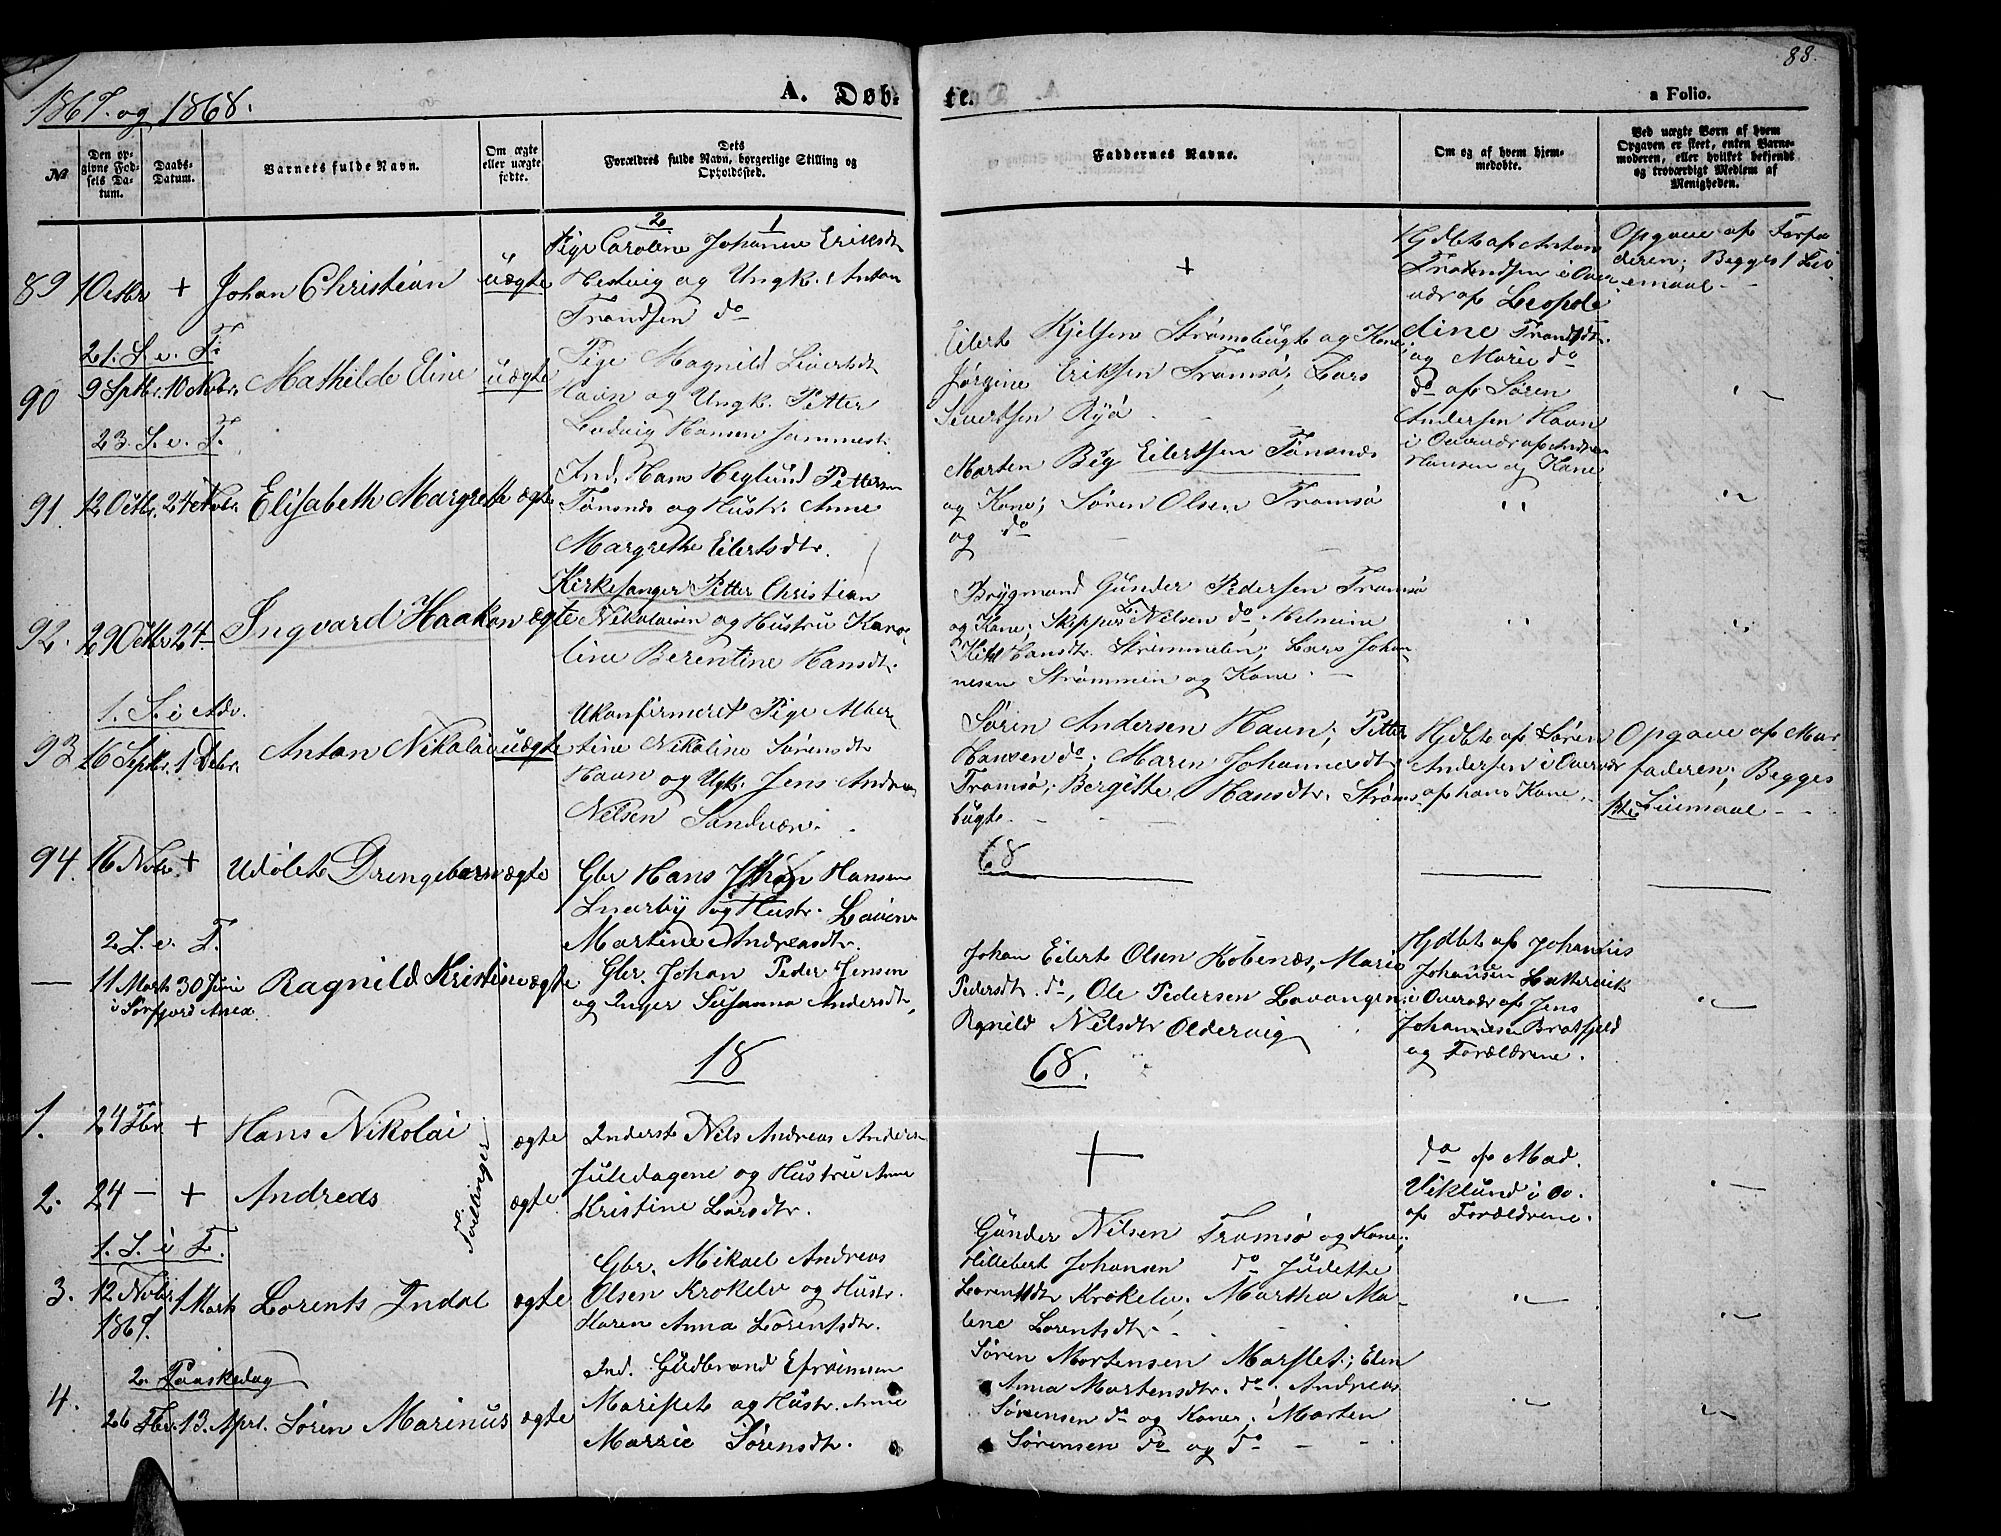 88.
1867. og 1868.
A. Døb-
te.
a Folio.
No
Den op-
givne Fød-
sels Da-
tum.
Daabs-
Datum.
Barnets fulde Navn.
Om ægte
eller uægte
fødte.
Dets
Forældres fulde Navn, borgerlige Stilling og
Opholdssted.
Faddernes Navne.
Om og af hvem hjem-
medøbte.
Ved uægte Børn af hvem
Opgaven er skeet, enten Barne-
moderen, eller hvilket bekjendt
og troværdigt Medlem af
Menigheden.
89 1 Octbr + Johan Christian uægte
2 1
Pige Caroline Johanne Eriksdt
Hedvig og Ungk. Anton
Frandsen do
+
Hjdbt af Anton
Frandsen i Over
vær af Leopol
dine Frandsdt.
og Marie do
Opgave af Farfa
deren; Begges 1 Lei
emaal -
21. S. e. T.
90 9 Septbr. 10 Novbr. Mathilde Eline uægte
Pige Magnild Sivertsdt
Havn og Ungk. Petter
Ludvig Hansen sammest.
Eilert Kjelsen Strømsbugt og Kone;
Jørgine Eriksen Tromsø; Lars
Sivertsen Ryø -
do af Søren
Andersen Havn
i Overvær af Andrea
Hansen og Kone
23. S. e. T.
91. 12 Octbr. 24 Novbr. Elisabeth Margrethe ægte
Ind. Hans Heglund Pettersen
Tønsnes og Hustr. Anne
Margrethe Eilertsdtr.
Morten Big Eilertsen Tønsnes
og Kone; Søren Olsen Tromsø
og do
92. 29 Octbr 24 - Ingvard Haakon ægte
Kirkesanger Petter Christian
Nikolaisen og Hustru Karo-
line Berentine Hansdt.
Bøygmand Gunder Pedersen Tromsø
og Kone; Skipper L. Nilsen do; Helmine
Hansdtr. Strømmelen; Lars Johan-
nesen Strømmen og Kone. -
1. S. i Adv.
93 16 Septbr. 1 Debr. Anton Nikolai uægte
Ukonfirmeret Pige Alber
tine Nikoline Sørensdt
Havn og Ugk. Jens Andrea
Nilsen Sandvær.
Søren Andersen Havn; Petter
Hansen do; Maren Johannesdt
Tromsø; Bergitte Hansdtr. Strøms-
bugt. - - -
Hjdbt af Søren
Andersen i Overvær
af hans Kone. -
Opgave af Mor
faderen; Begges
1ste Leiemaal - -
94. 16 Novbr. + Udøbt Drengebarn ægte
Gbr Hans Johan Hansen
Snarby og Hustr. Lovise
Martine Andreasdtr.
68
2 S. e. T.
— 11 Marts 30 Juni Ragnild Kristine ægte
i Sørfjord Anex.
Gbr. Johan Peder Jensen
og Inger Susanna Andersdt,
Johan Eilert Olsen Kobenæs, Marie
Pedersdt. do, Ole Pedersen Lavangen;
Ragnild Nilsdtr Oldervig
Hjdbt af Johannes
Johansen Lattervik
i Overvær af Jens
Johannesen Bratfjeld
og Forældrene.
18
68.
1. 24 Fbr. + Hans Nikolai ægte
Tvillinger
Inderst Nils Andreas Anders-
Juledagene og Hustru Anne
Kristine Larsdtr.
2. 24 — + Andreas ægte
do af Mad.
Viklund i Ov.
af Forældrene.
1. S. i F.
3. 12 Novbr 1 Marts Lorents Indal ægte
1867.
Gbr. Mikael Andreas
Olsen Krokelv og Hustr.
Karen Anna Lorentsdtr.
Gunder Nilsen Tromsø og Kone;
Hillebert Johansen do Judette
Lorentsdtr Krokelv; Martha Ma-
lene Lorentsdtr. -
2. Paaskedag
4. 26 Fbr. 13. Aprl. Søren Marinus ægte
Ind. Gudbrand Efraimsen
Marislet og Hustr. Anne
Marie Sørensdtr.
Søren Mortensen Marslet; Elen
Anna Mortensdtr. do. Andreas
Sørensen do og Kone; Morten
Sørensen do og do - -